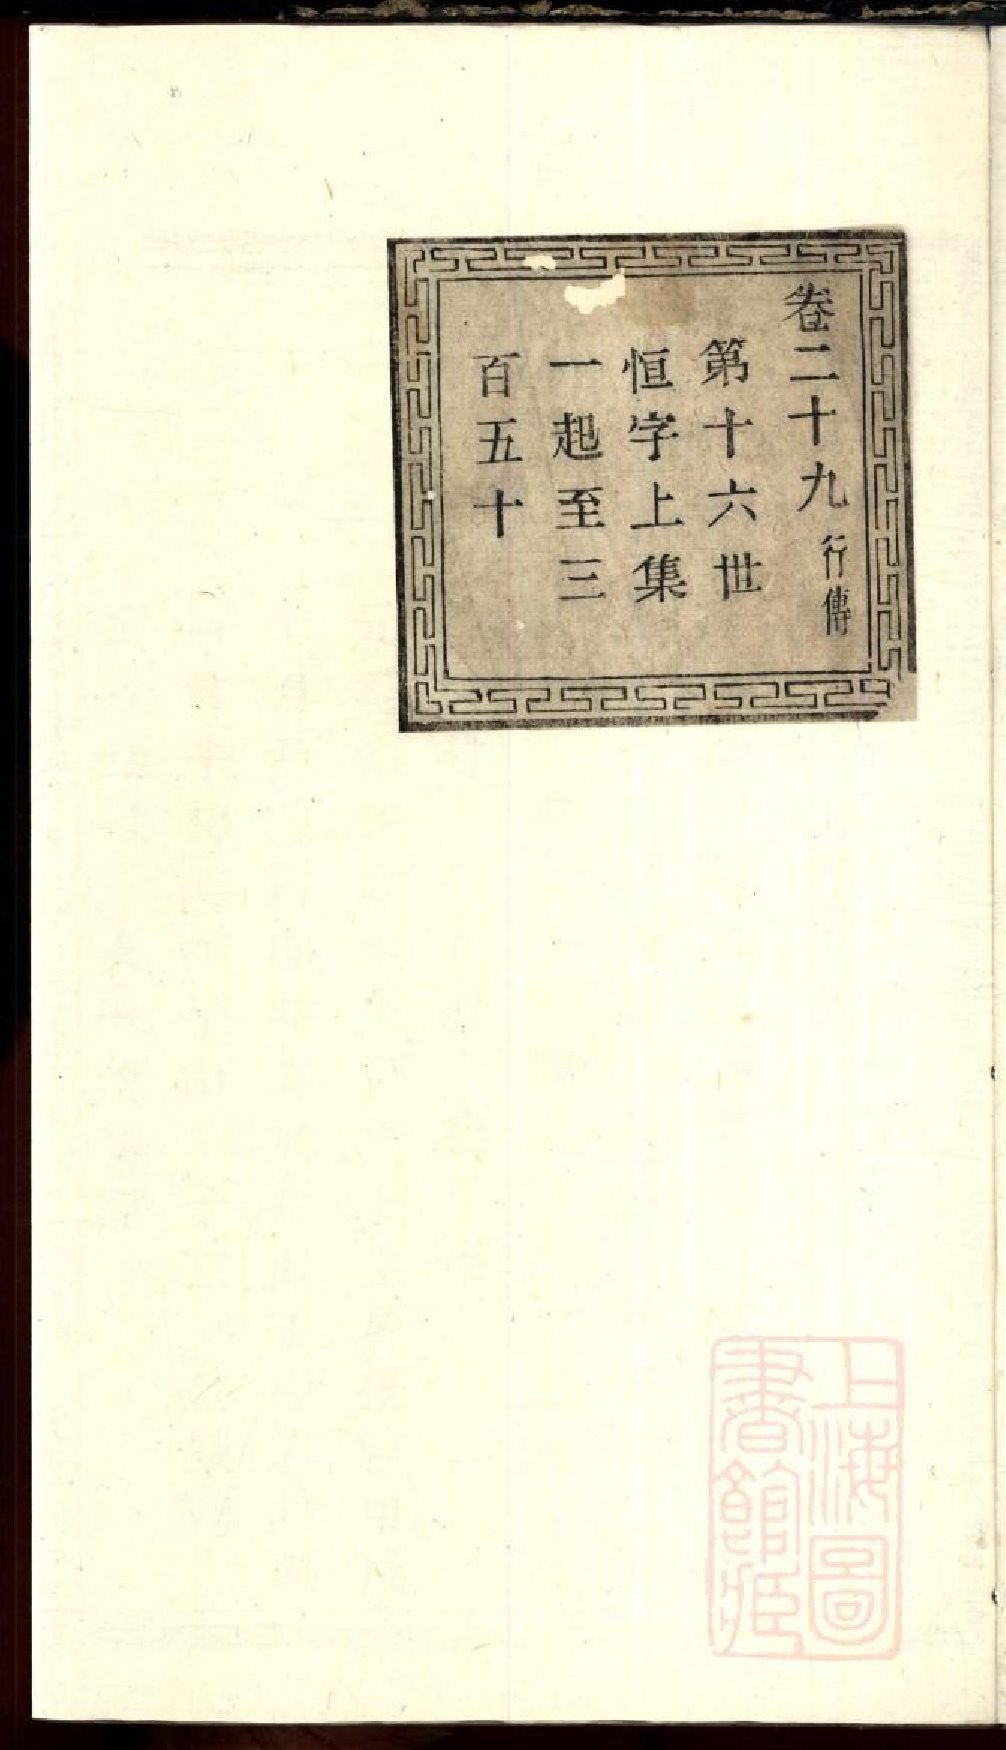 卷二十九 行傳
第十六世
恒字上集
一起至三
百五十
上海圖
書館藏